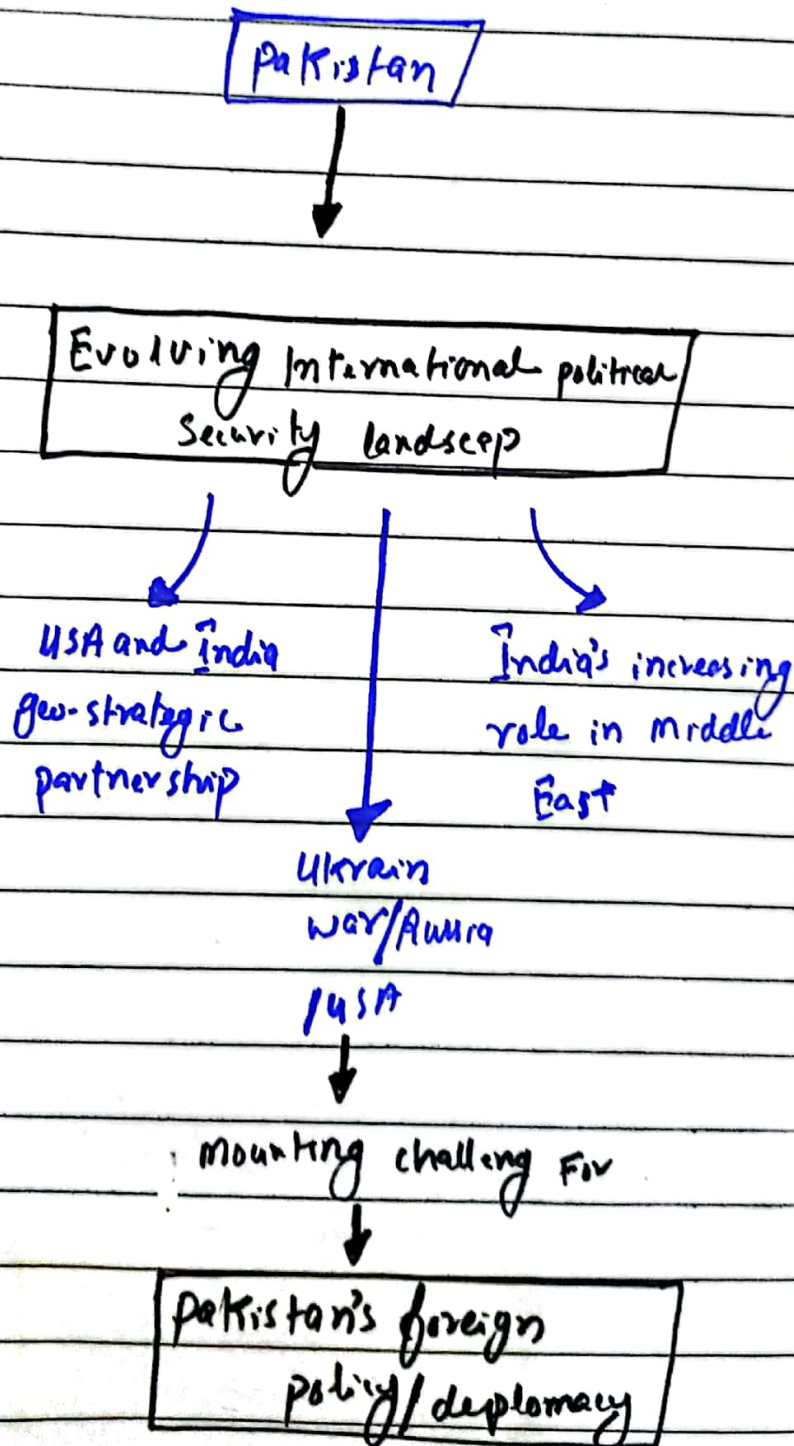 Pakistan
Evolving International political
Security landscep
USA and India
geo-strategic
partnership
India's increasing
role in Middle
East
Ukrain
war/Russia
/USA
mounting challeng For
Pakistan's foreign
policy/deplomacy